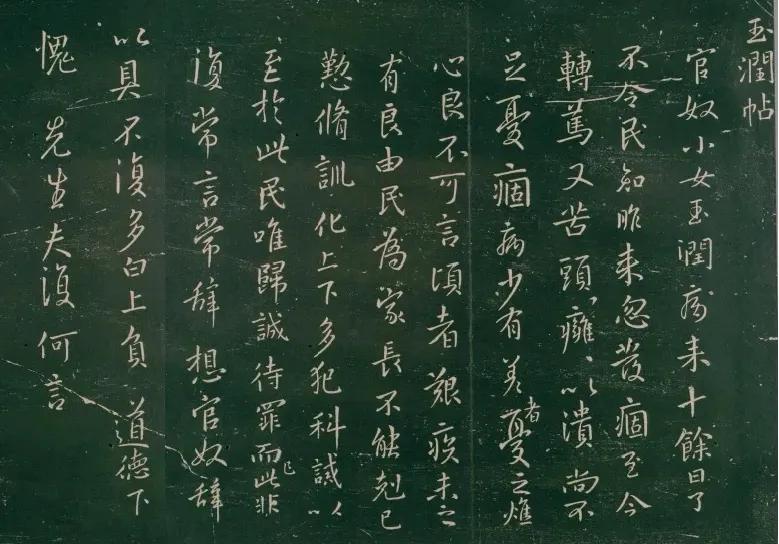 玉潤帖
官奴小女玉潤病来十餘日了
不令民知昨来忽發痼至今
轉篤又苦頭癰頭癰以潰尚不
足憂痼病少有差者憂之燋
心良不可言頃者艱疾未之
有良由民為家長不能剋己
懃脩訓化上下多犯科誡以
至於此民唯歸誠待罪而已此非
復常言常辞想官奴辞
以具不復多白上負道德下
愧先生夫復何言